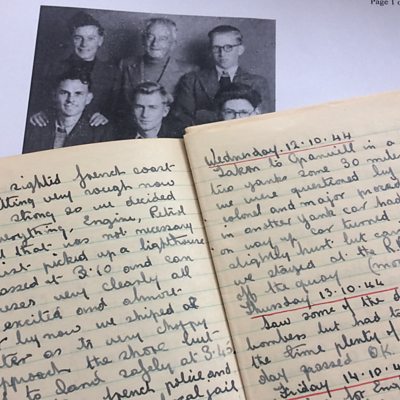 Page 1 o
sighted french coast
tting very rough now
strong so we decided
everything, Engine, Petrol
d that was not necessary
just picked up a lighthouse
passed at 3.10 and can
uses very clearly all
excited and almost
by now we shiped a
ter as its very choppy
pproach the shore but
to land safely at 3.45
french police and
cal jail
Wednesday 12.10.44
Taken to Granvill in a
two yanks some 30 miles
we were questioned by
colonel and major proced
in another yank car had
on way up car turned
slightly hurt but can
we stayed at the
off the quay (mor
Thursday 13.10.44
Saw some of the d
bombers but had to
the time plenty of
day passed O.K.
Friday 14.10.4
for Eng